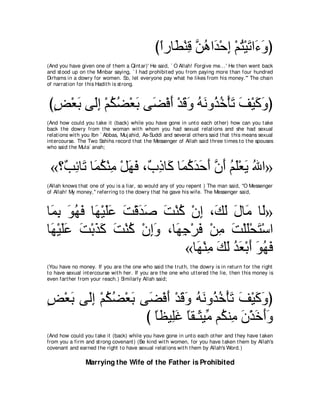 (وَءَاتَيْتُمْ إِحْدَاهُنَّ قِنْطَاراً)
(And you have given one of them a Qintar)' He said, `O Allah! Forgive me...' He then went back
and stood up on the Minbar saying, `I had prohibited you from paying more than four hundred
Dirhams in a dowry for women. So, let everyone pay what he likes from his money.''' The chain
of narration for this Hadith is strong.
(وَكَيْفَ تَأْخُذُونَهُ وَقَدْ أَفْضَى بَعْضُكُمْ إِلَى بَعْضٍ)
(And how could you take it (back) while you have gone in unto each other) how can you take
back the dowry from the woman with whom you had sexual relations and she had sexual
relations with you Ibn `Abbas, Mujahid, As-Suddi and several others said that this means sexual
intercourse. The Two Sahihs record that the Messenger of Allah said three times to the spouses
who said the Mula`anah;
«اللهُ يَعْلَمُ أَنَّ أَحَدَكُمَا كَاذِبٌ، فَهَلْ مِنْكُمَا تَائِبٌ؟»
(Allah knows that one of you is a liar, so would any of you repent) The man said, "O Messenger
of Allah! My money,'' referring to the dowry that he gave his wife. The Messenger said,
«لَا مَالَ لَكَ، إِنْ كُنْتَ صَدَقْتَ عَلَيْهَا فَهُوَ بِمَا
اسْتَحْلَلْتَ مِنْ فَرْجِهَا، وَإِنْ كُنْتَ كَذَبْتَ عَلَيْهَا
فَهُوَ أَبْعَدُ لَكَ مِنْهَا»
(You have no money. If you are the one who said the truth, the dowry is in return for the right
to have sexual intercourse with her. If you are the one who uttered the lie, then this money is
even farther from your reach.) Similarly Allah said;
(وَكَيْفَ تَأْخُذُونَهُ وَقَدْ أَفْضَى بَعْضُكُمْ إِلَى بَعْضٍ
وَأَخَذْنَ مِنكُم مِّيثَـقاً غَلِيظاً )
(And how could you take it (back) while you have gone in unto each other and they have taken
from you a firm and strong covenant) (Be kind with women, for you have taken them by Allah's
covenant and earned the right to have sexual relations with them by Allah's Word.)
Marrying the Wife of the Father is Prohibited